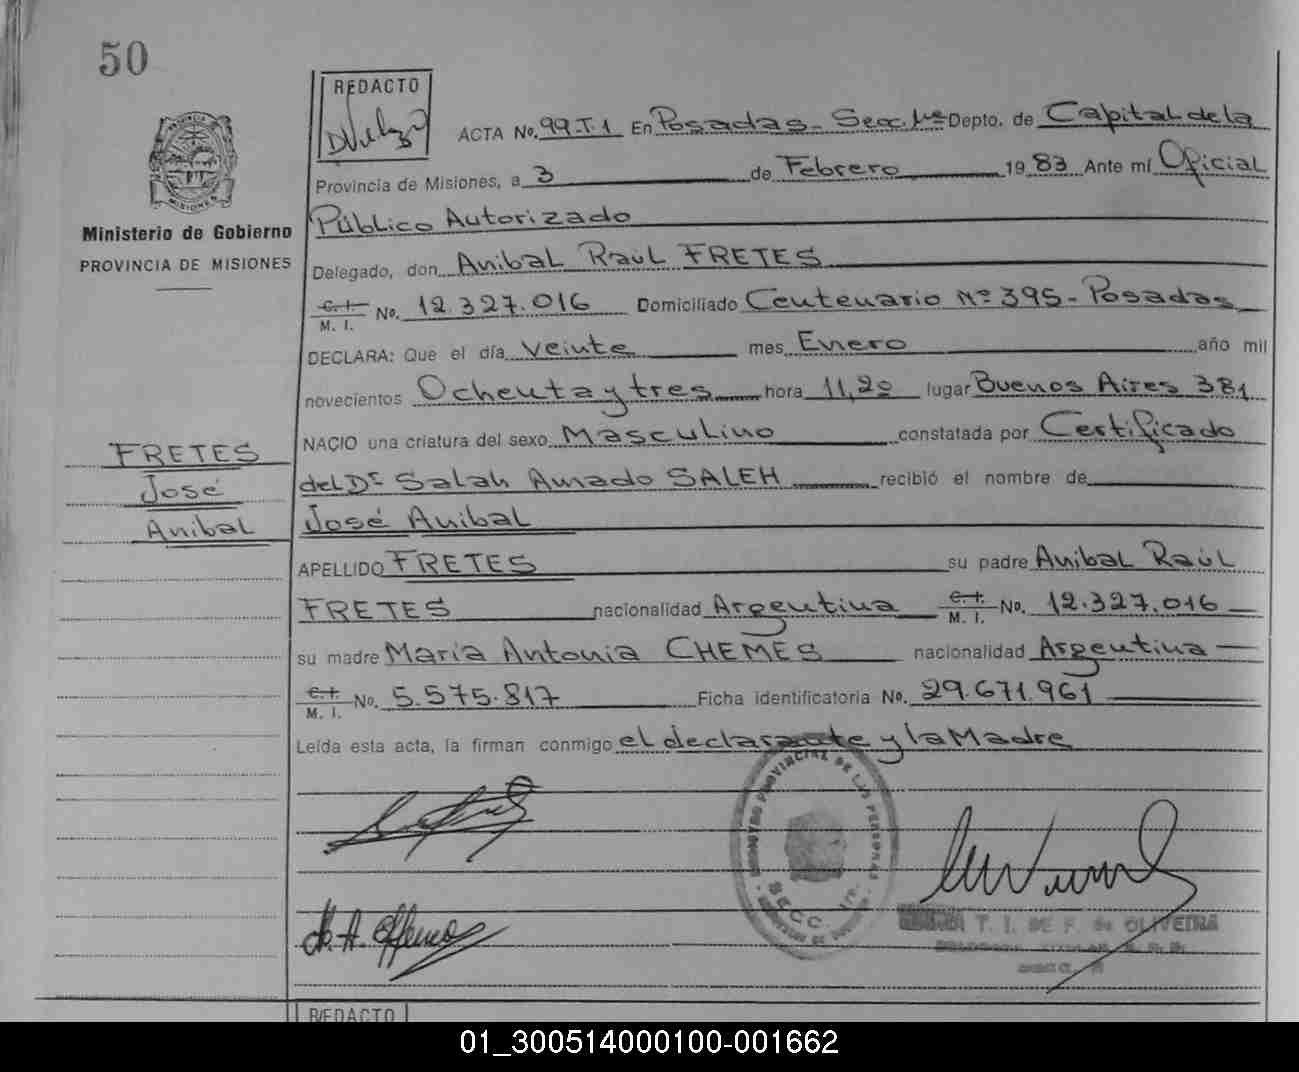 50
REDACTO
ACTA No. 99-T.1 En Posadas- Secc. 1ª Depto. de Capital de la
Provincia de Misiones, a 3 de Febrero 1983 Ante mí Oficial
Público Autorizado
Ministerio de Gobierno
PROVINCIA DE MISIONES
Delegado, don Anibal Raúl FRETES
C. I.
M. I. No. 12.327.016 Domiciliado Centenario Nº 395- Posadas
DECLARA: Que el día Veinte mes Enero año mil
novecientos Ochenta y tres hora 11,20 lugar Buenos Aires 381
NACIO una criatura del sexo Masculino constatada por Certificado
del Dr Salah Amado SALEH recibió el nombre de
FRETES
José
Anibal
José Anibal
APELLIDO FRETES su padre Anibal Raúl
FRETES nacionalidad Argentina C. I. M. I. No. 12.327.016
su madre María Antonia CHEMES nacionalidad Argentina
C. I.
M. I. No. 5.575.817 Ficha identificatoria No. 29.671.961
Leída esta acta, la firman conmigo el declarante y la Madre
REGISTRO PROVINCIAL DE LAS PERSONAS
SECC.
T. I. DE F. de OLIVEIRA
REDACTO
01_300514000100-001662